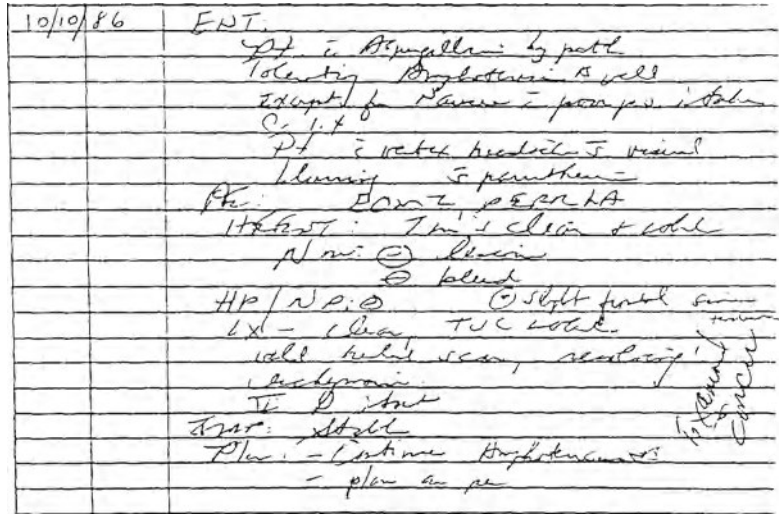 10/10/86 ENT.
Pt. c Aspergillosis by path
Tolerating Amphotericin B well
Except for Nausea c poor p.o. intake
Pt c vertex headache s visual
blurring s
PE: EOMI PERRLA
HEENT: TM's clear + mobile
Nose: ⊖ lesion
⊖ bleed
HP/NP: ⊖ slight frontal sinus
LX - clear, TVC mobile
well healed scar, resolving
ecchymosis
intact
Imp: Stable
Plan: - Continue Amphotericin
- plan as per
I examined
+ concur